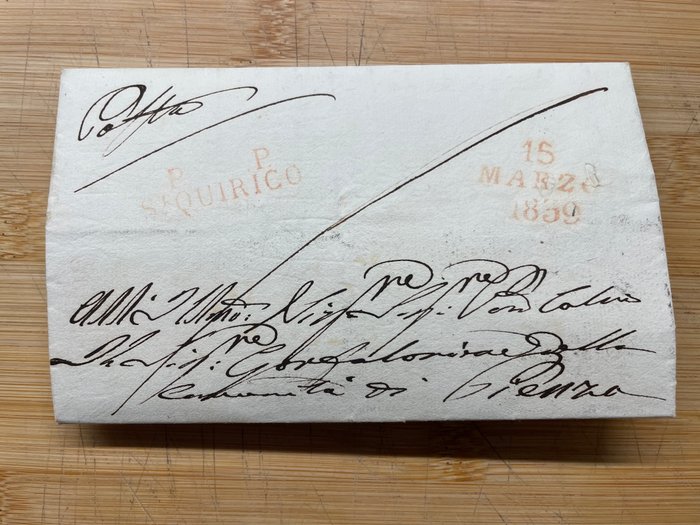 Posta
P P
S. QUIRICO
15
MARZO
1839
All'Illmo: Sigre Sigre Pron Colmo
Il Sigre Gonfaloniere della
Comunità di Pienza